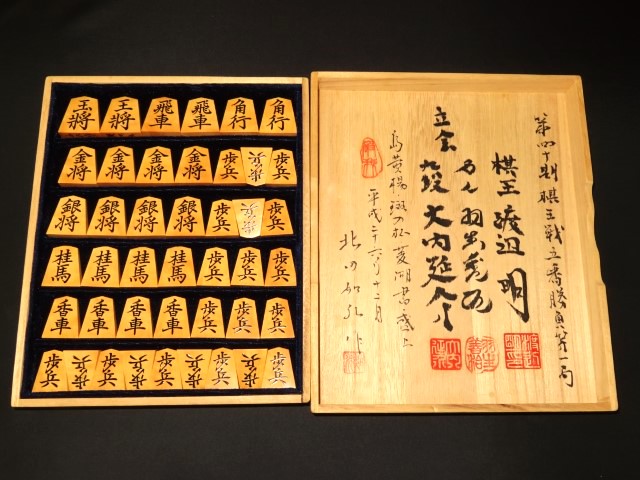 玉将 王将 飛車 飛車 角行 角行
金将 金将 金将 金将 歩兵 歩兵 歩兵
銀将 銀将 銀将 銀将 歩兵 歩兵 歩兵
桂馬 桂馬 桂馬 桂馬 歩兵 歩兵 歩兵
香車 香車 香車 香車 歩兵 歩兵 歩兵
歩兵 歩兵 歩兵 歩兵 歩兵 歩兵 歩兵 歩兵 歩兵
第四十期 棋王戦五番勝負第一局
棋王 渡辺 明
名人 羽生善治
立会 九段 大内延介
島黄楊 菱湖書盛上
平成二十六年十二月
北田如弘 作